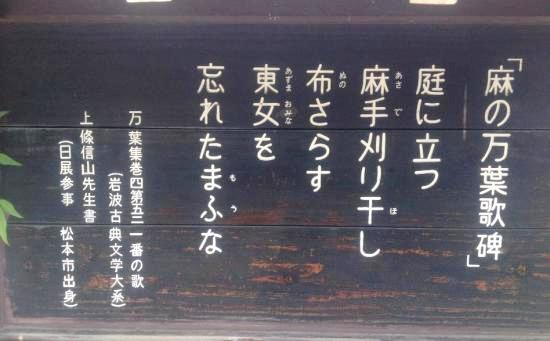 「麻の万葉歌碑」
庭に立つ
麻手刈り干し
あさ で ほ
布さらす
ぬの
東女を
あずま おみな
忘れたまふな
もう
万葉集巻四第五二一番の歌
(岩波古典文学大系)
上條信山先生書
(日展参事 松本市出身)